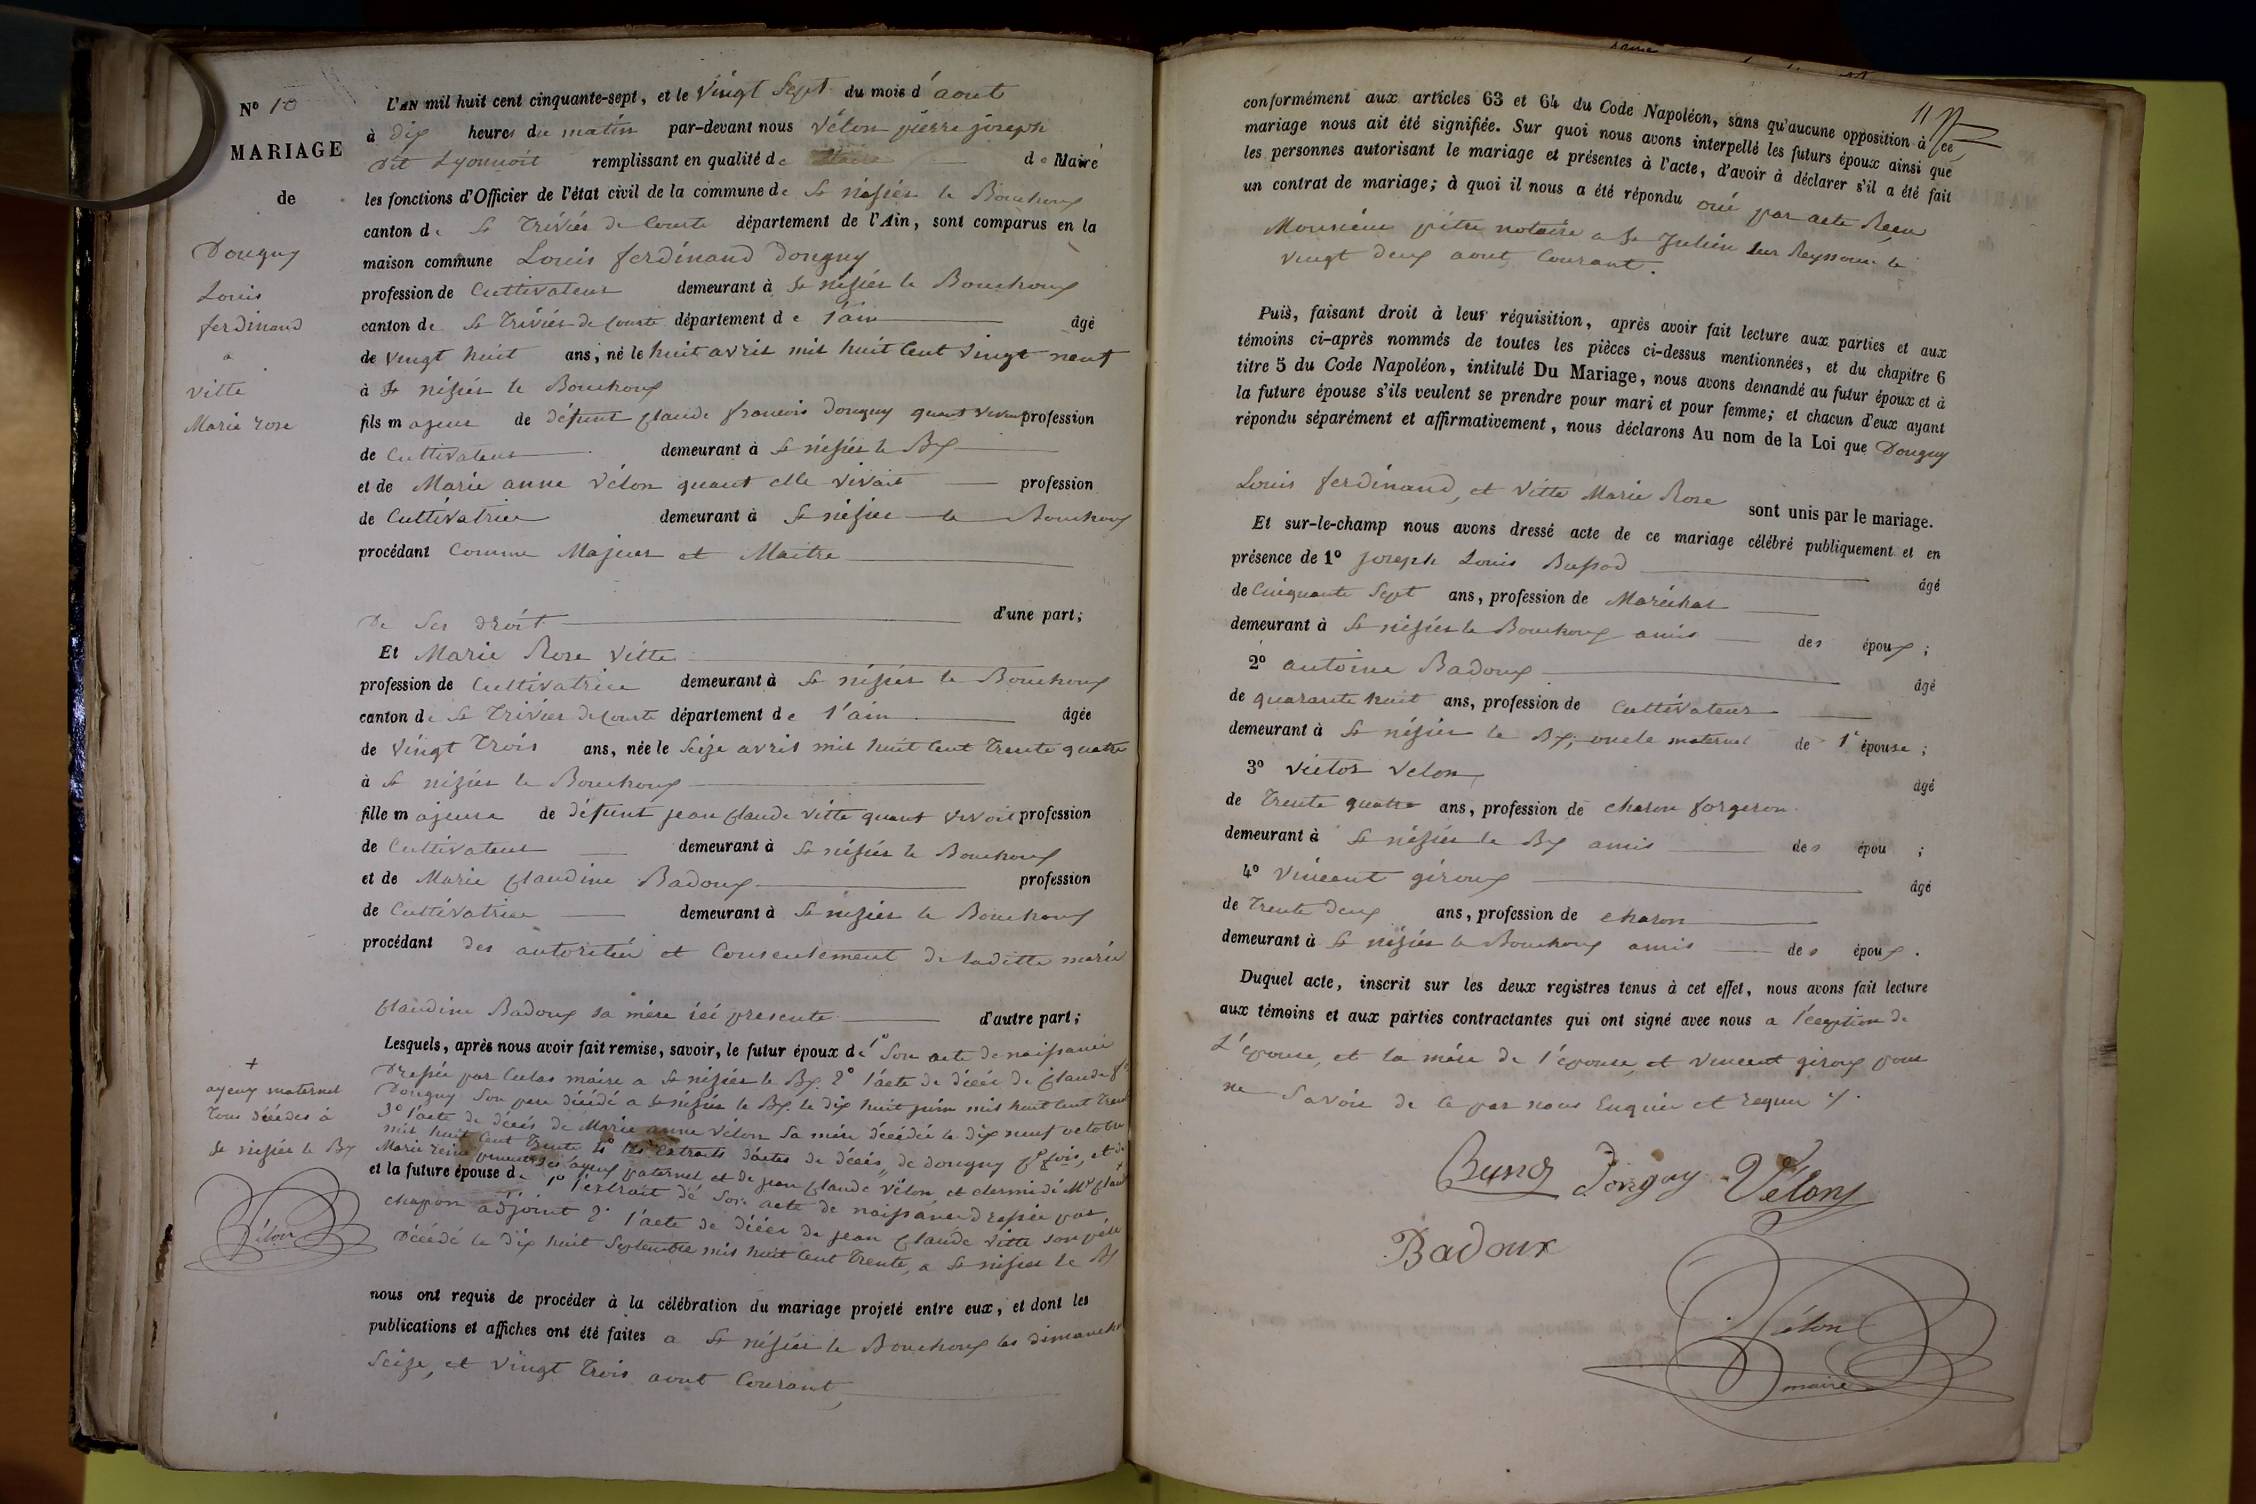 N° 10
MARIAGE
de
Dougny
Louis
ferdinand
a
vitte
Marie rose
L'AN mil huit cent cinquante-sept, et le vingt Sept du mois d'aout
à dix heures du matin par-devant nous vélon pierre joseph
dit Lyonnoit remplissant en qualité de Maire de Maire
les fonctions d'Officier de l'état civil de la commune de St nisier le Bouchoux
canton de St Triviér de Courte département de l'Ain, sont comparus en la
maison commune Louis ferdinand Dougny
profession de Cultivateur demeurant à St nisier le Bouchoux
canton de St Triviér de Courte département de l'ain âgé
de vingt huit ans, né le huit avril mil huit Cent vingt neuf
à St nisiér le Bouchoux
fils majeur de défunt claude francois Dougny quant vivait profession
de Cultivateur demeurant à St nisiér le Bx
et de Marie anne vélon quant elle vivait profession
de Cultivatrice demeurant à St nisier le Bouchoux
procédant Comme Majeur et Maitre
De Ses droit d'une part;
Et Marie Rose Vitte
profession de Cultivatrice demeurant à St nisier le Bouchoux
canton de St Trivier de Courte département de l'ain âgée
de vingt Trois ans, née le Seize avril mil huit Cent Trente quatre
à St nizier le Bouchoux
fille majeure de défunt jean claude vitte quant vivoit profession
de Cultivateur demeurant à St nisiér le Bouchoux
et de Marie claudine Badoux profession
de Cultivatrice demeurant à St nizier le Bouchoux
procédant des autoritér et Consentement de laditte marie
claudine Badoux sa mére ici presente d'autre part;
Lesquels, après nous avoir fait remise, savoir, le futur époux de 1° Son acte de naissance
Dressée par Culas maire a St nisiér le Bx. 2° l'acte de décés de claude fs
Dougny Son pere décédé a St nisiér le Bx. le dix huit juin mil huit Cent Trente
3° l'acte de décés de Marie anne vélon Sa mére décédée le dix neuf octobre
mil huit Cent Trente 4° les Extraits d'actes de décés, de dougny fois, et de
Marie reine ses ayeux paternel et de jean claude vélon, et de Me claude
et la future épouse de 1° l'extrait de Son acte de naissance dressée par
chapon adjoint 2° l'acte de décés de jean claude vitte son pére
Décédé le dix huit Septembre mil huit Cent Trente, a St nisier le Bx
+
ayeux maternel
Tous décédés à
St nisier le Bx
Vélon
nous ont requis de procéder à la célébration du mariage projeté entre eux, et dont les
publications et affiches ont été faites a St nisiér le Bouchoux les dimanche
Seize, et vingt Trois aout Courant,
11
conformément aux articles 63 et 64 du Code Napoléon, sans qu'aucune opposition à ce
mariage nous ait été signifiée. Sur quoi nous avons interpellé les futurs époux ainsi que
les personnes autorisant le mariage et présentes à l'acte, d'avoir à déclarer s'il a été fait
un contrat de mariage; à quoi il nous a été répondu oui par acte Recu
Monsieur pitre notaire a St Julien sur Reyssouze le
vingt deux aout Courant.
Puis, faisant droit à leur réquisition, après avoir fait lecture aux parties et aux
témoins ci-après nommés de toutes les pièces ci-dessus mentionnées, et du chapitre 6
titre 5 du Code Napoléon, intitulé Du Mariage, nous avons demandé au futur époux et à
la future épouse s'ils veulent se prendre pour mari et pour femme; et chacun d'eux ayant
répondu séparément et affirmativement, nous déclarons Au nom de la Loi que Dougny
Louis ferdinand, et vitte Marie Rose sont unis par le mariage.
Et sur-le-champ nous avons dressé acte de ce mariage célébré publiquement et en
présence de 1° joseph Louis Bussod âgé
de Cinquante Sept ans, profession de Maréchal
demeurant à St nisiér le Bouchoux amis des époux;
2° antoine Badoux âgé
de quarante huit ans, profession de Cultivateur
demeurant à St nisiér le Bx, oncle maternel de l'épouse;
3° victor velon âgé
de Trente quatre ans, profession de charon forgeron
demeurant à St nisiér le Bx amis des épou ;
4° vincent giroux âgé
de Trente deux ans, profession de charon
demeurant à St nisiér le Bouchoux amis des époux.
Duquel acte, inscrit sur les deux registres tenus à cet effet, nous avons fait lecture
aux témoins et aux parties contractantes qui ont signé avec nous a l'éception de
L'épouse, et la mére de l'epouse, et vincent giroux pour
ne Savoir de ce par nous Enquis et requis
Dongny Vélon
Badoux
Vélon
maire